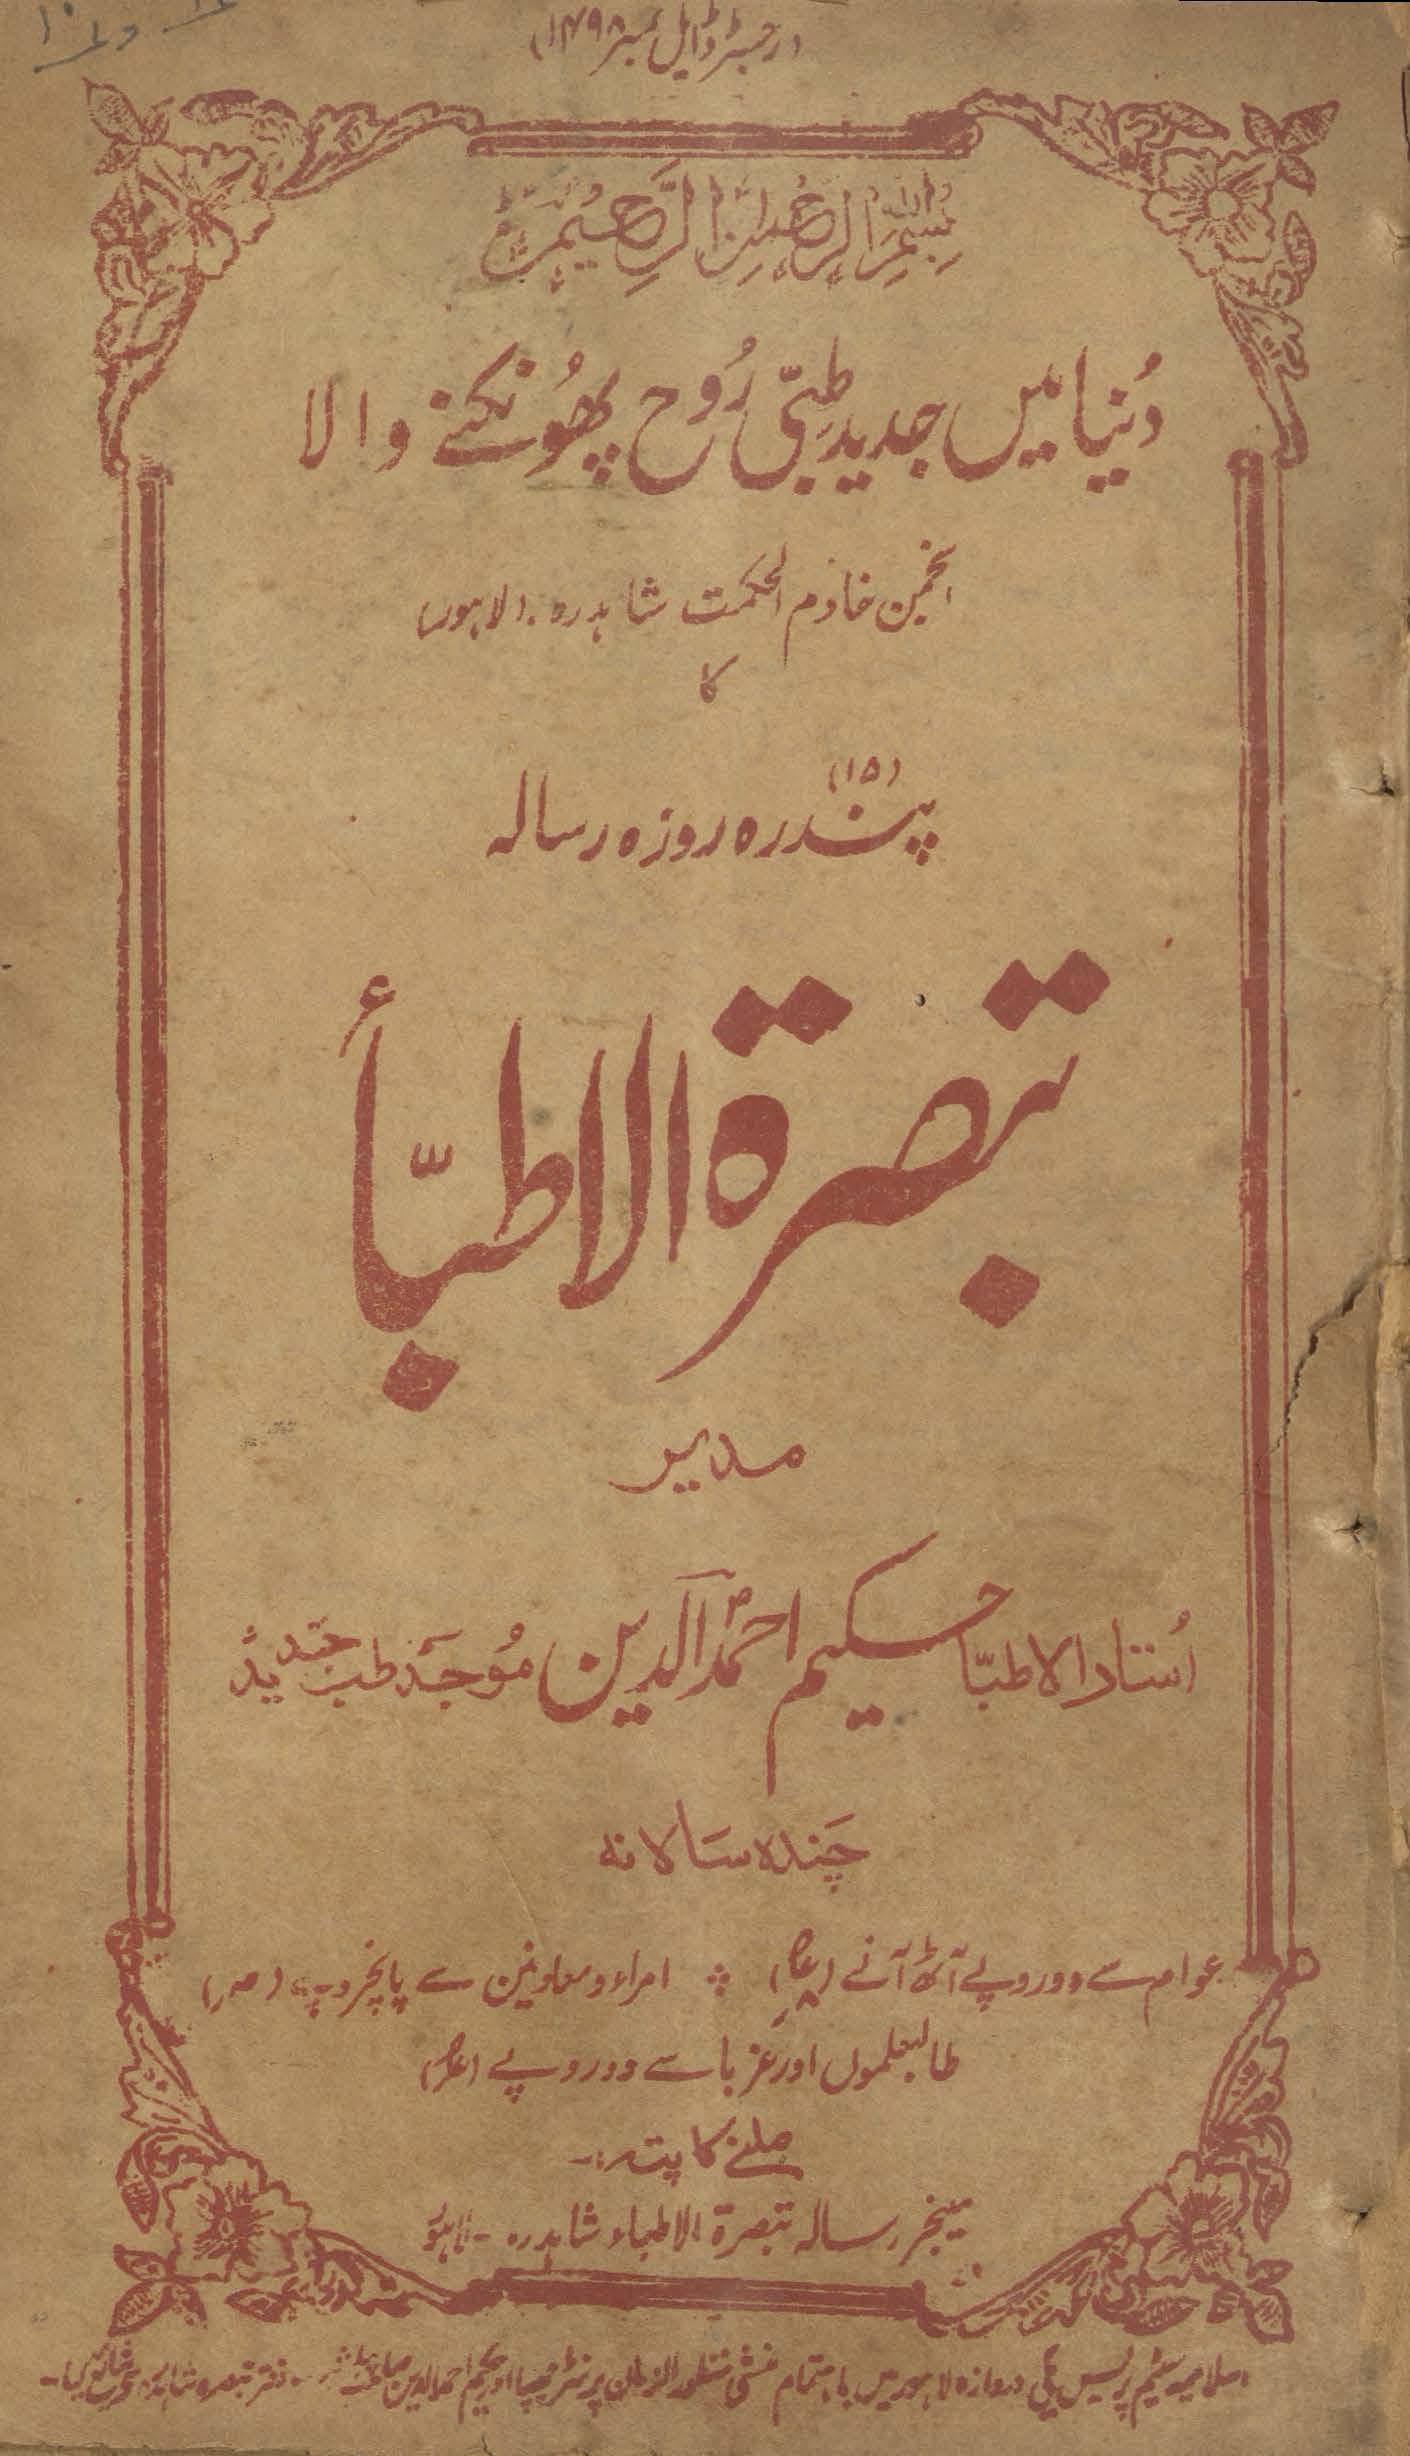 (رجسٹرڈ ایل نمبر ۱۴۹۸)
بِسْمِ اللہِ الرَّحْمٰنِ الرَّحِیْمِ
دُنیا میں جدید طبّی رُوح پھُونکنے والا
انجمن خادم الحکمت شاہدرہ (لاہور)
کا
(۱۵)
پندرہ روزہ رسالہ
تبصرۃ الاطبّأ
مدیر
اُستاد الاطبّا حکیم احمد الدین مُوجد طب جدید
چندہ سالانہ
عوام سے دو روپے آٹھ آنے امراء و معاونین سے پانچروپیہ
طالبعلموں اور غربا سے دو روپے
ملنے کا پتہ:-
مینجر رسالہ تبصرۃ الاطباء شاہدرہ - لاہور
اسلامیہ سٹیم پریس دروازہ لاہور میں باہتمام منشی منظور الزمان پرنٹر چھپا اور حکیم احمد الدین دفتر تبصرہ شاہدرہ سے شائع کیا-